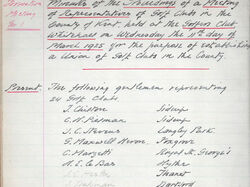 Formation
Meeting
No 1
Minutes of the Proceedings of a Meeting
of Representatives of Golf Clubs in the
County of Kent held at the Golfers Club
Whitehall on Wednesday the 11th day of
March 1925 for the purpose of establishing
a Union of Golf Clubs in the County.
Present. The following gentlemen representing
Golf Clubs
J. Sidcup
C. H. Sidcup
J. C. Stevens Langley Park
G. Maxwell Foxgrove
C. Royal St. George's
Hythe
Thanet
Dartford